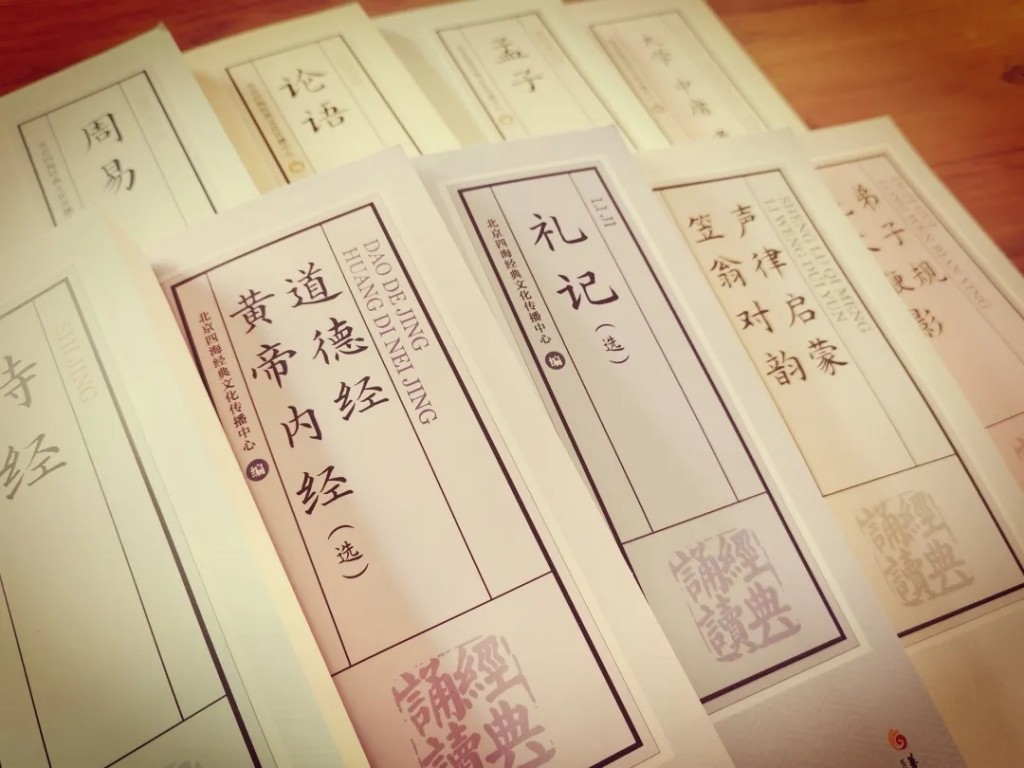 周易
论语
孟子
大学 中庸
SHI JING
经
DAO DE JING
HUANG DI NEI JING
道德经
黄帝内经(选)
北京四海经典文化传播中心 编
經典
誦讀
LI JI
礼记(选)
北京四海经典文化传播中心 编
經典
誦讀
SHENG LÜ QI MENG
LI WENG DUI YUN
声律启蒙
笠翁对韵
經典
誦讀
弟子规
影